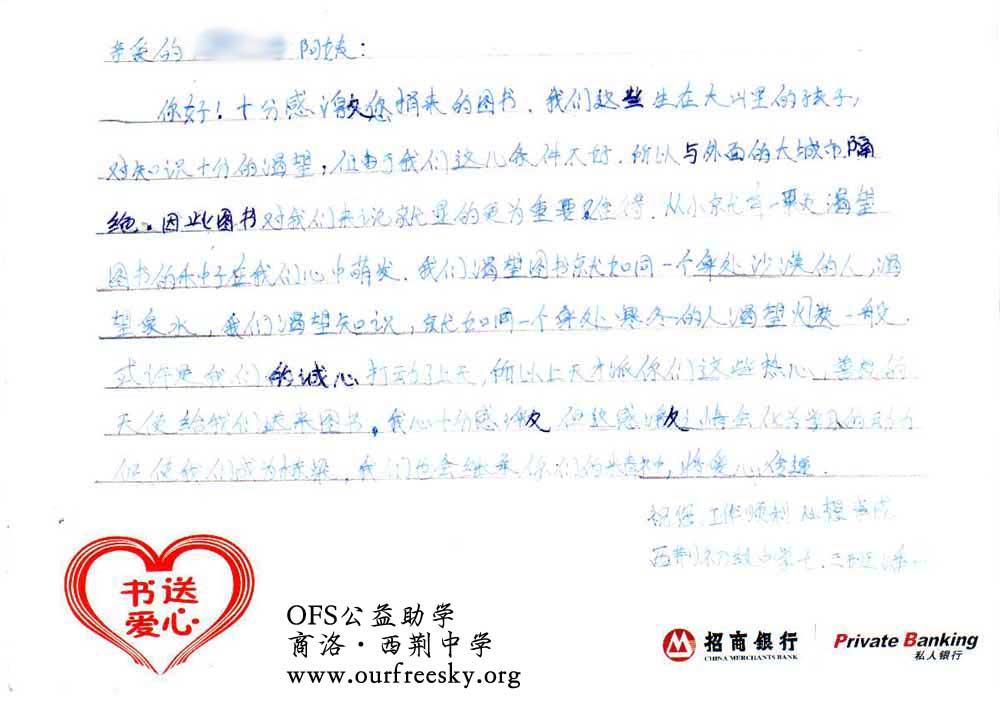 亲爱的 阿姨:
你好!十分感谢您捐来的图书,我们这些生在大山里的孩子,
对知识十分的渴望,但由于我们这儿条件不好,所以与外面的大城市隔
绝。因此图书对我们来说就显的更为重要 从小就有一颗渴望
图书的种子在我们心中萌发,我们渴望图书就如同一个身处沙漠的人,渴
望泉水,我们渴望知识,就如同一个身处寒冬的人渴望火 一般.
或许是我们的诚心打动了上天,所以上天才派你们这些热心,善良的
天使给我们送来图书。我心十分感谢 但这感谢 将会化为学习的动力
使我们成为栋梁,我们也会继承你们的精神,将爱心传递.
祝您工作顺利
西荆初级中学七.三班
书送
爱心
OFS公益助学
商洛·西荆中学
www.ourfreesky.org
招商银行
CHINA MERCHANTS BANK
Private Banking
私人银行